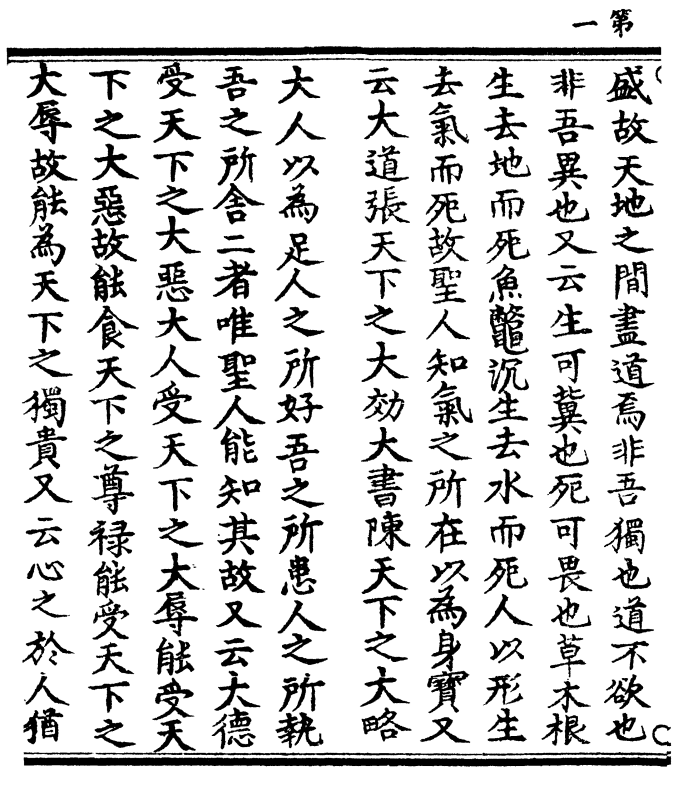 第一
盛故天地之間盡道焉非吾獨也道不欲也
非吾異也又云生可冀也死可畏也草木根
生去地而死魚鼈沉生去水而死人以形生
去氣而死故聖人知氣之所在以為身寶又
云大道張天下之大効大書陳天下之大略
大人以為足人之所好吾之所患人之所執
吾之所舍二者唯聖人能知其故又云大德
受天下之大惡大人受天下之大辱能受天
下之大惡故能食天下之尊祿能受天下之
大辱故能為天下之獨貴又云心之於人猶